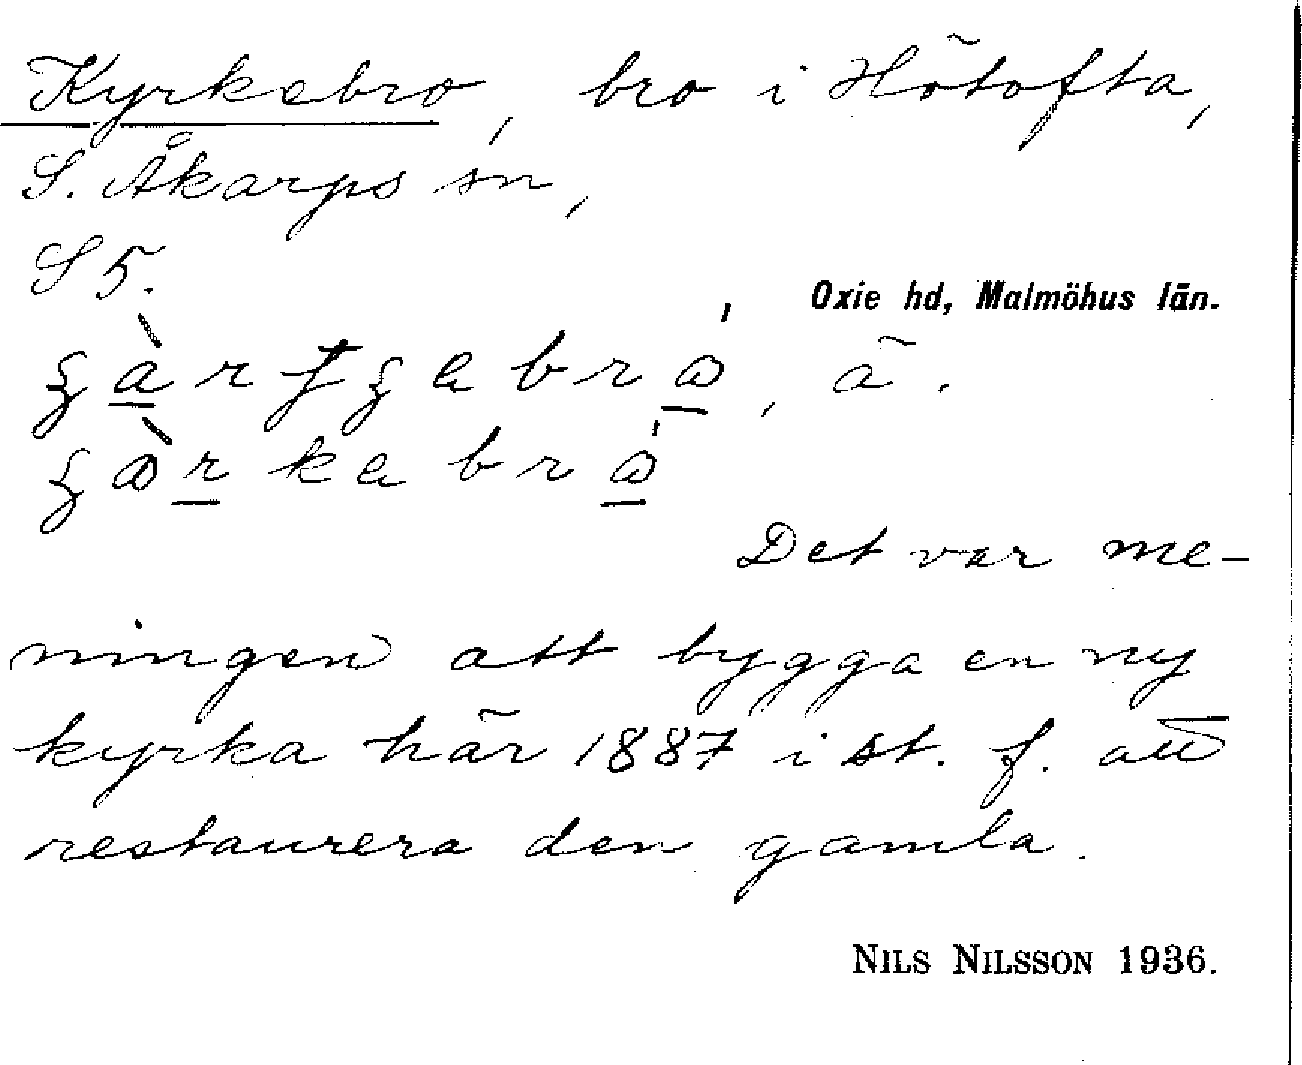 Kyrkebro, bro i Hötofta,
S. Åkarps sn,
S 5.
Oxie hd, Malmöhus län.
ä.
Det var me-
ningen att bygga en ny
kyrka här 1887 i st. f. att
restaurera den gamla.
NILS NILSSON 1936.